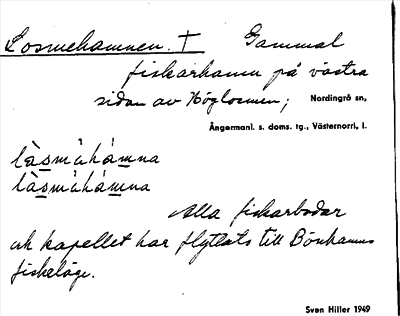 Losmehamnen. † Gammal
fiskarhamn på västra
sidan av Höglosmen; Nordingrå sn,
Ångermanl. s. doms. tg., Västernorrl. l.
làsmùhá̀mna
làsmùhá̀mna
Alla fiskarbodar
och kapellet har flyttats till Bönhamns
fiskeläge.
Sven Hiller 1949